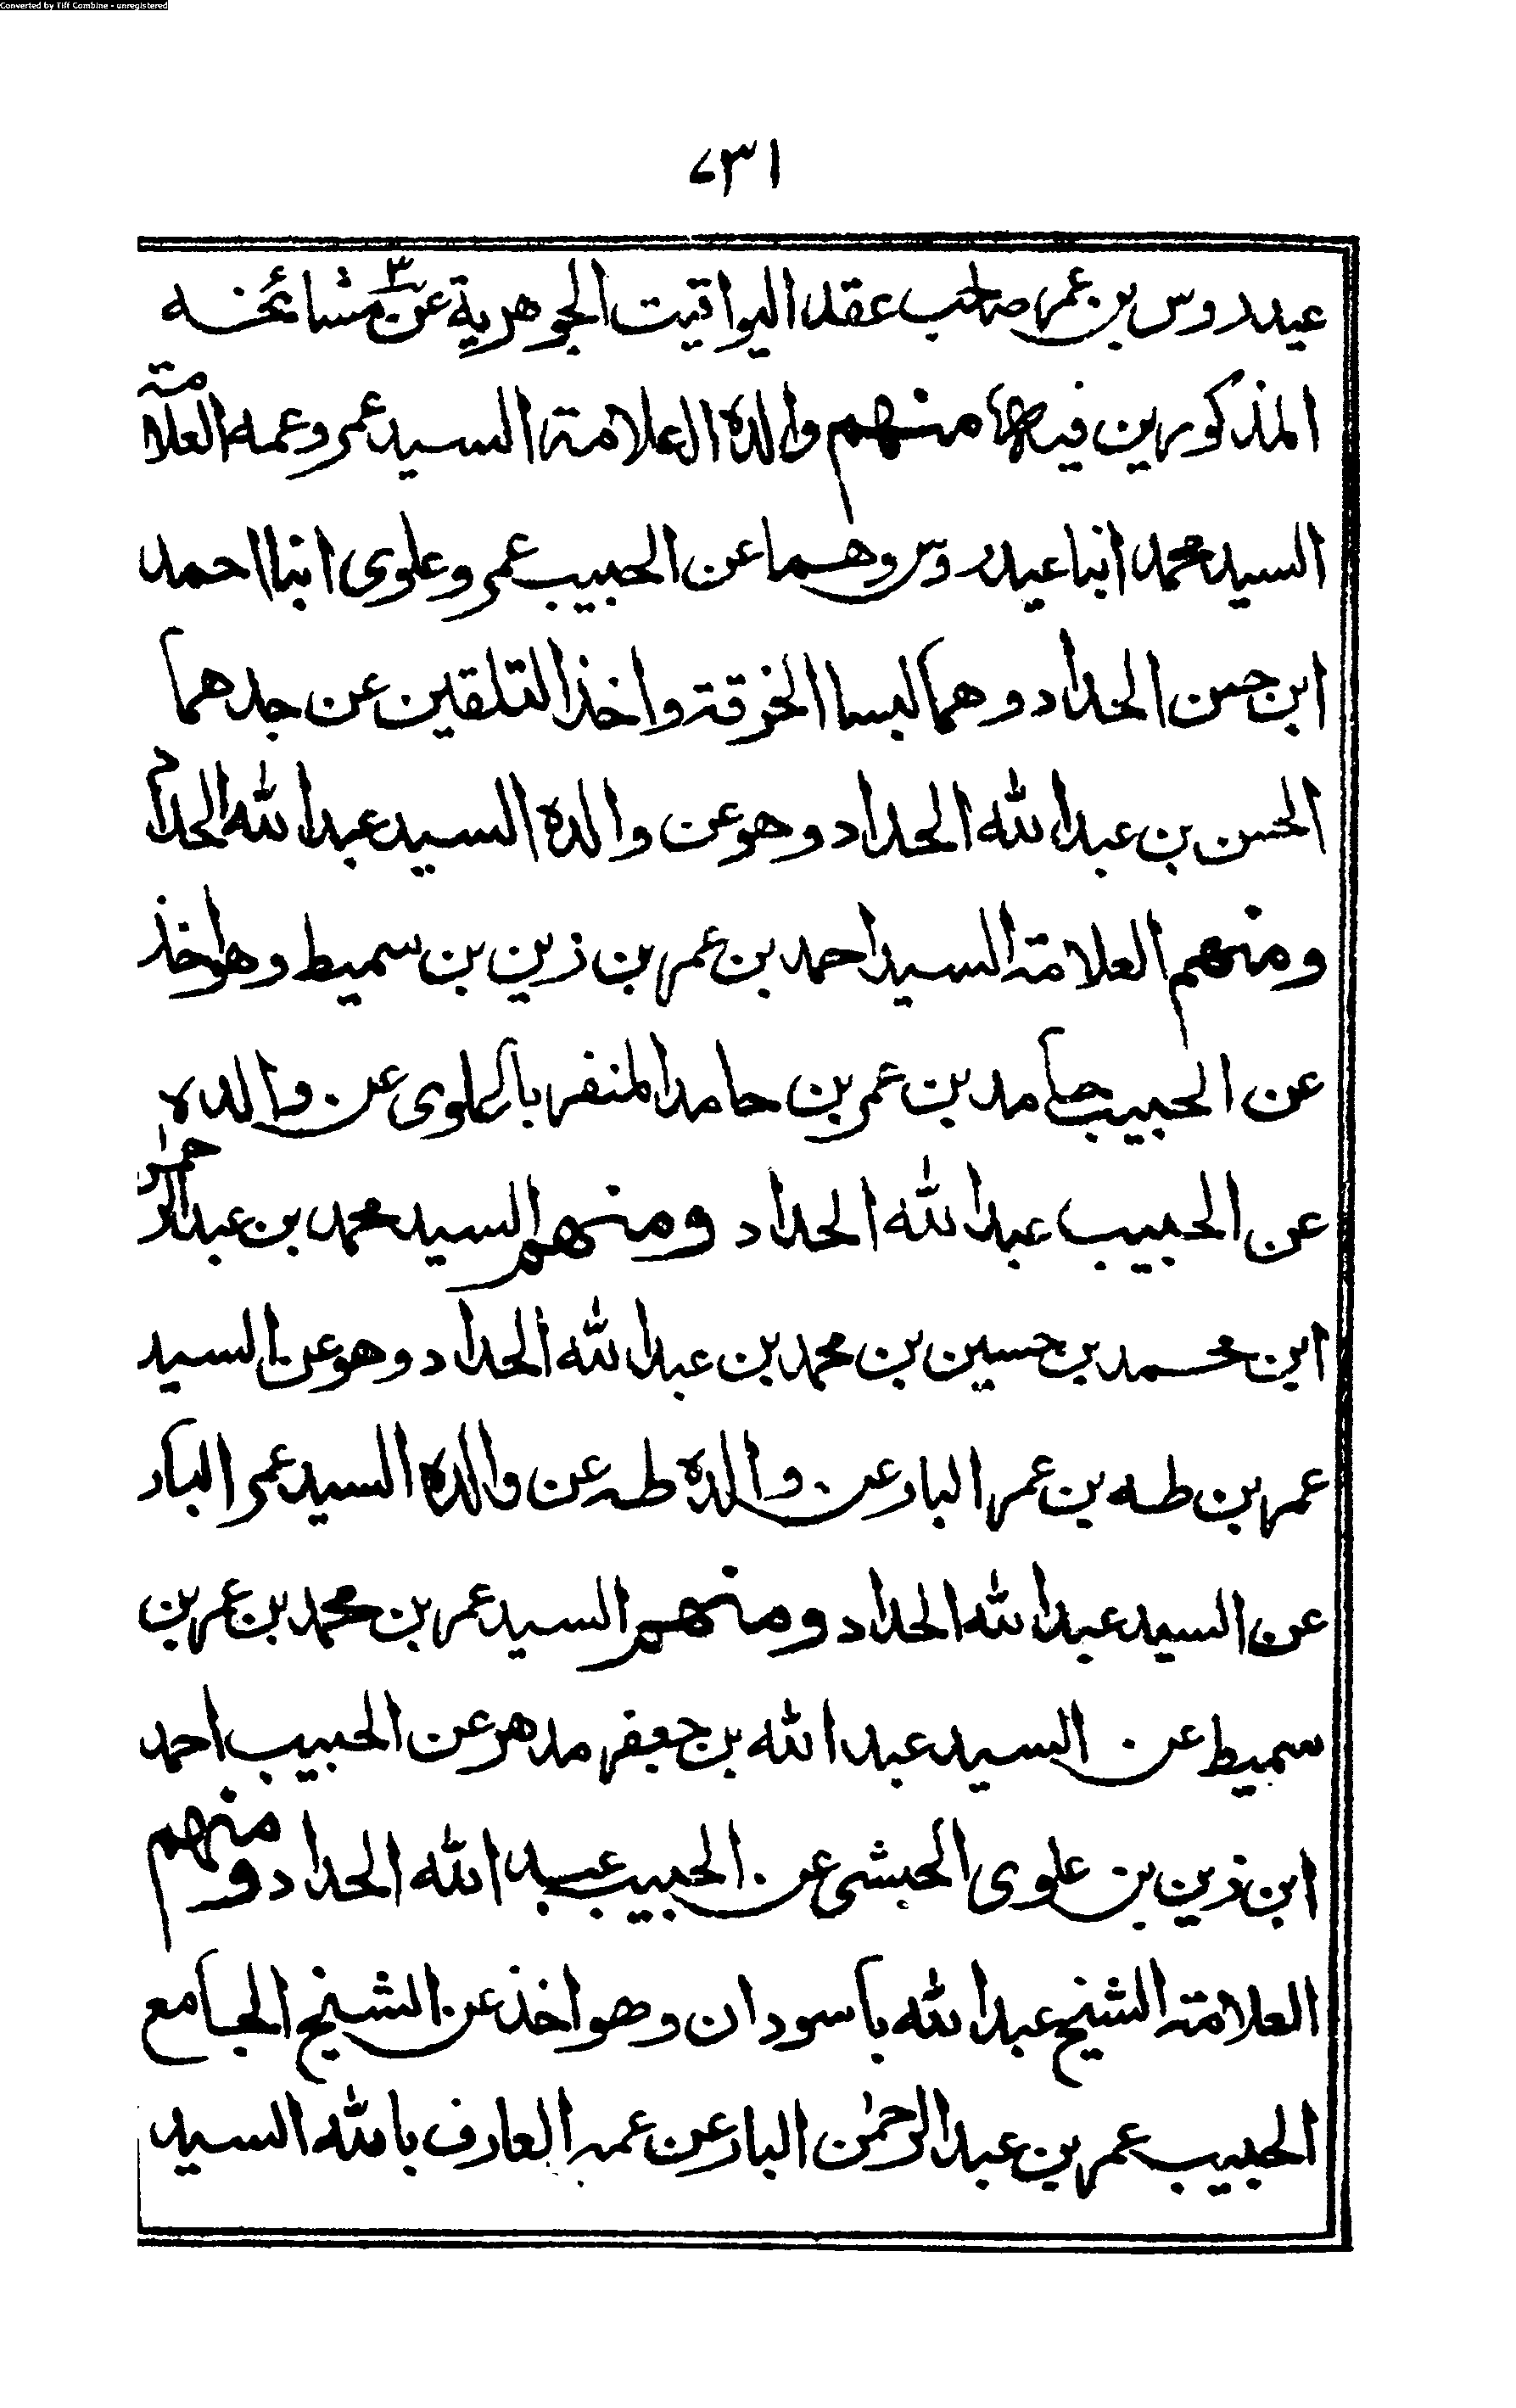 Converted by Tiff Combine - unregistered
٧٣١
عيدروس بن عمر صاحب عقد اليواقيت الجوهرية عن ٣ مشائخه
المذكورين فيها منهم والده العلامة السيد عمر وعمه العلامة
السيد محمد ابنا عيدروس وهما عن الحبيب عمر وعلوى ابنا احمد
ابن حسن الحداد وهما لبسا الخرقة واخذا التلقين عن جدهما
الحسن بن عبدالله الحداد وهو عن والده السيد عبدالله الحداد
ومنهم العلامة السيد احمد بن عمر بن زين بن سميط وهو اخذ
عن الحبيب حامد بن عمر بن حامد المنفر باعلوى عن والده
عن الحبيب عبدالله الحداد ومنهم السيد محمد بن عبدالرحمن
ابن محمد بن حسين بن محمد بن عبدالله الحداد وهو عن السيد
عمر بن طه بن عمر البار عن والده طه عن والده السيد عمر البار
عن السيد عبدالله الحداد ومنهم السيد عمر بن محمد بن عمر بن
سميط عن السيد عبدالله بن جعفر مدهر عن الحبيب احمد
ابن زين بن علوى الحبشى عن الحبيب عبدالله الحداد ومنهم
العلامة الشيخ عبدالله باسودان وهو اخذ عن الشيخ الجامع
الحبيب عمر بن عبدالرحمن البار عن عمه العارف بالله السيد